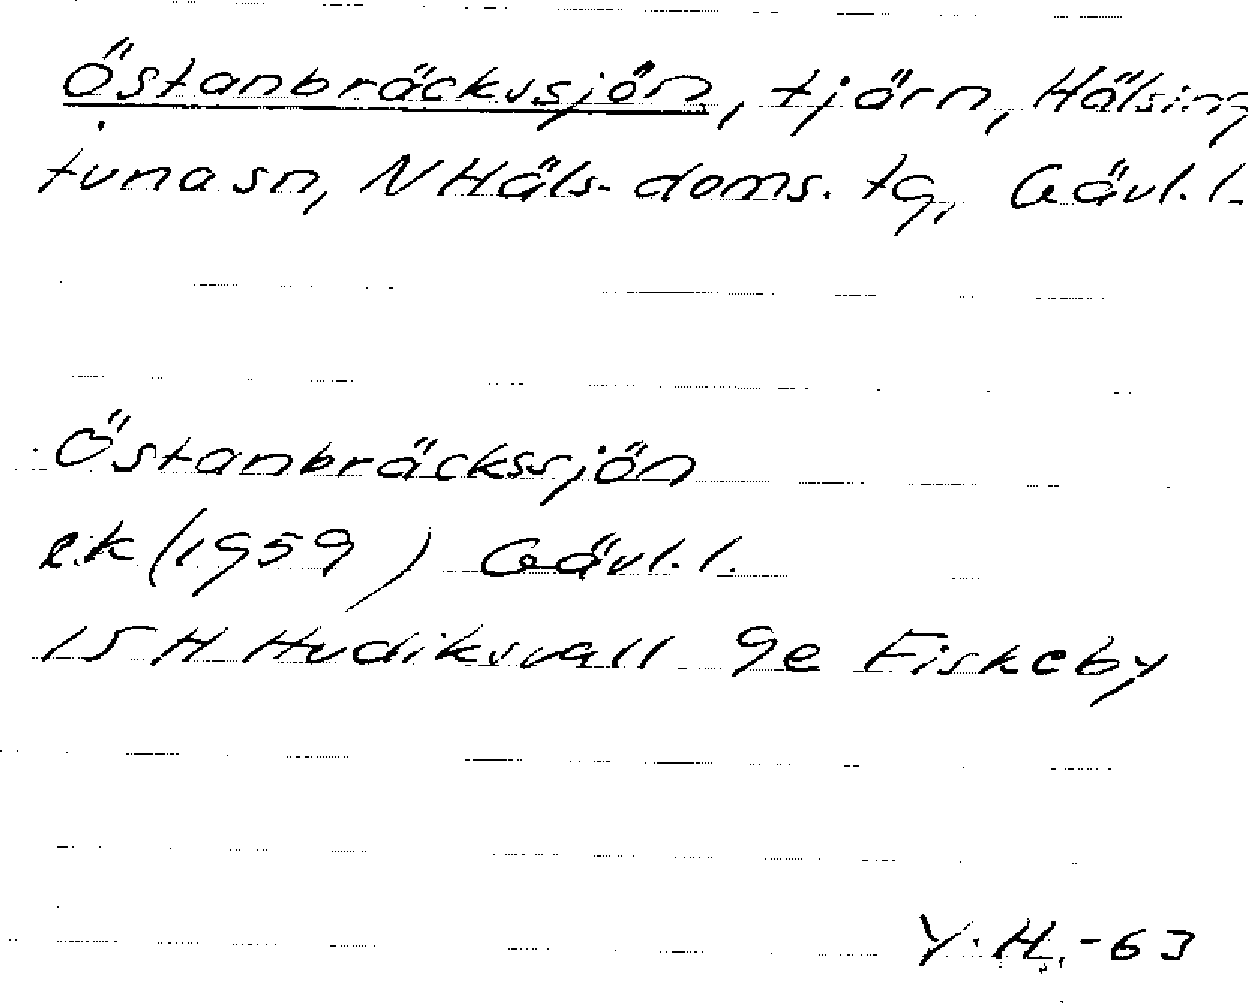 Östanbräckssjön, tjärn, Hälsing
tuna sn, N Häls. doms. tg, Gävl. l.
Östanbräckssjön
e.k (1959) Gävl. l.
15 H Hudiksvall 9e Fiskeby
Y. H. -63